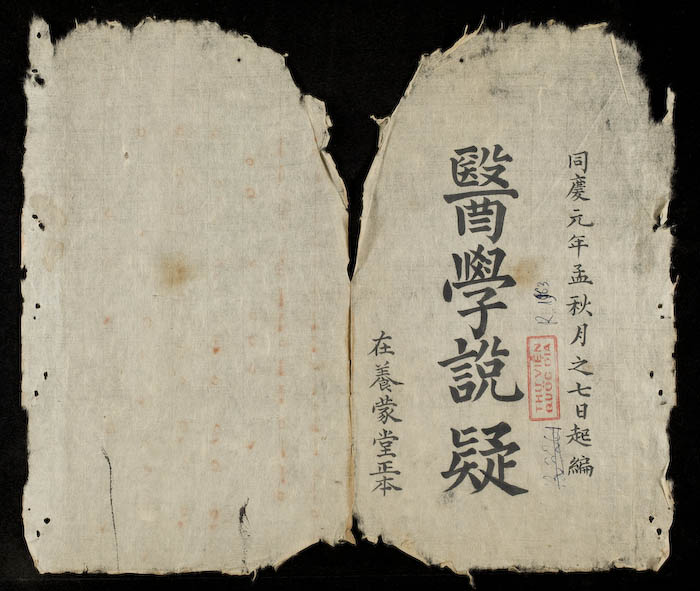 同慶元年孟秋月之七日起編
醫學說疑
在養蒙堂正本
THƯ VIỆN
QUỐC GIA